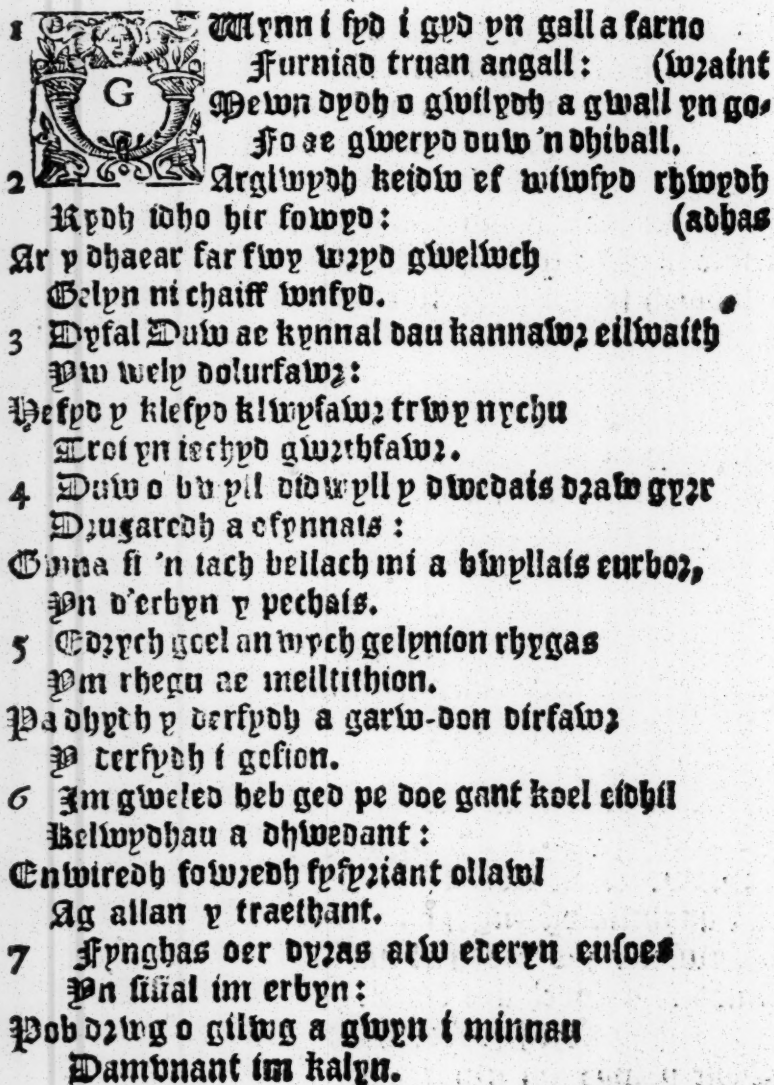 1 GWynn i fyd i gyd yn gall a farno
Furniad truan angall: (wraint
Mewn dydh o gwilydh a gwall yn go-
Fo ae gweryd duw 'n dhiball.
2 Arglwydh keidw ef wiwfyd rhwydh
Rydh idho hir fowyd: (adhas
Ar y dhaear far fwy wryd gwelwch
Gelyn ni chaiff wnfyd.
3 Dyfal Duw ae kynnal dau kannawr eilwaith
Yw wely dolurfawr:
Hefyd y klefyd klwyfawr trwy nychu
Troi yn iechyd gwrthfawr.
4 Duw o bu pil didwyll y dwedais draw gyrr
Drugaredh a ofynnais:
Gwna fi 'n iach bellach mi a bwyllais eurbor,
Yn d'erbyn y pechais.
5 Edrych goel anwych gelynion rhygas
Ym rhegu ae melltithion.
Pa dhydh y derfydh a garw-don dirfawr
Y derfydh i gofion.
6 Im gweled heb ged pe doe gant koel eidhil
Kelwydhau a dhwedant:
Enwiredh fowredh fyfyriant ollawl
Ag allan y traethant.
7 Fynghas oer dyras arw ederyn eusoes
Yn sisial im erbyn:
Pob drwg o gilwg a gwyn i minnau
Damunant im kalyn.